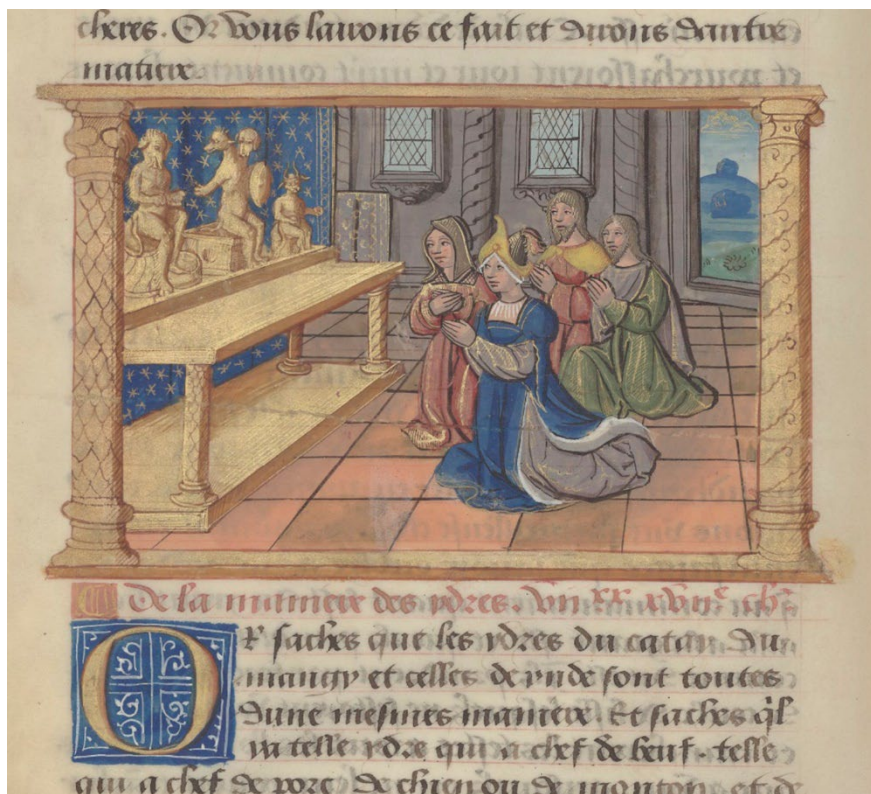 cheres. Or vous lairons ce fait et dirons dautre
matiere
De la maniere des ydres. viii xx xviiᵉ chᵉ
Or saches que les ydres du catay du
mangy et celles de ynde sont toutes
dune mesmes maniere. Et saches q̃l
ya telle ydre qui a chef de beuf. telle
qui a chef de porc. de chien ou de mouton et de